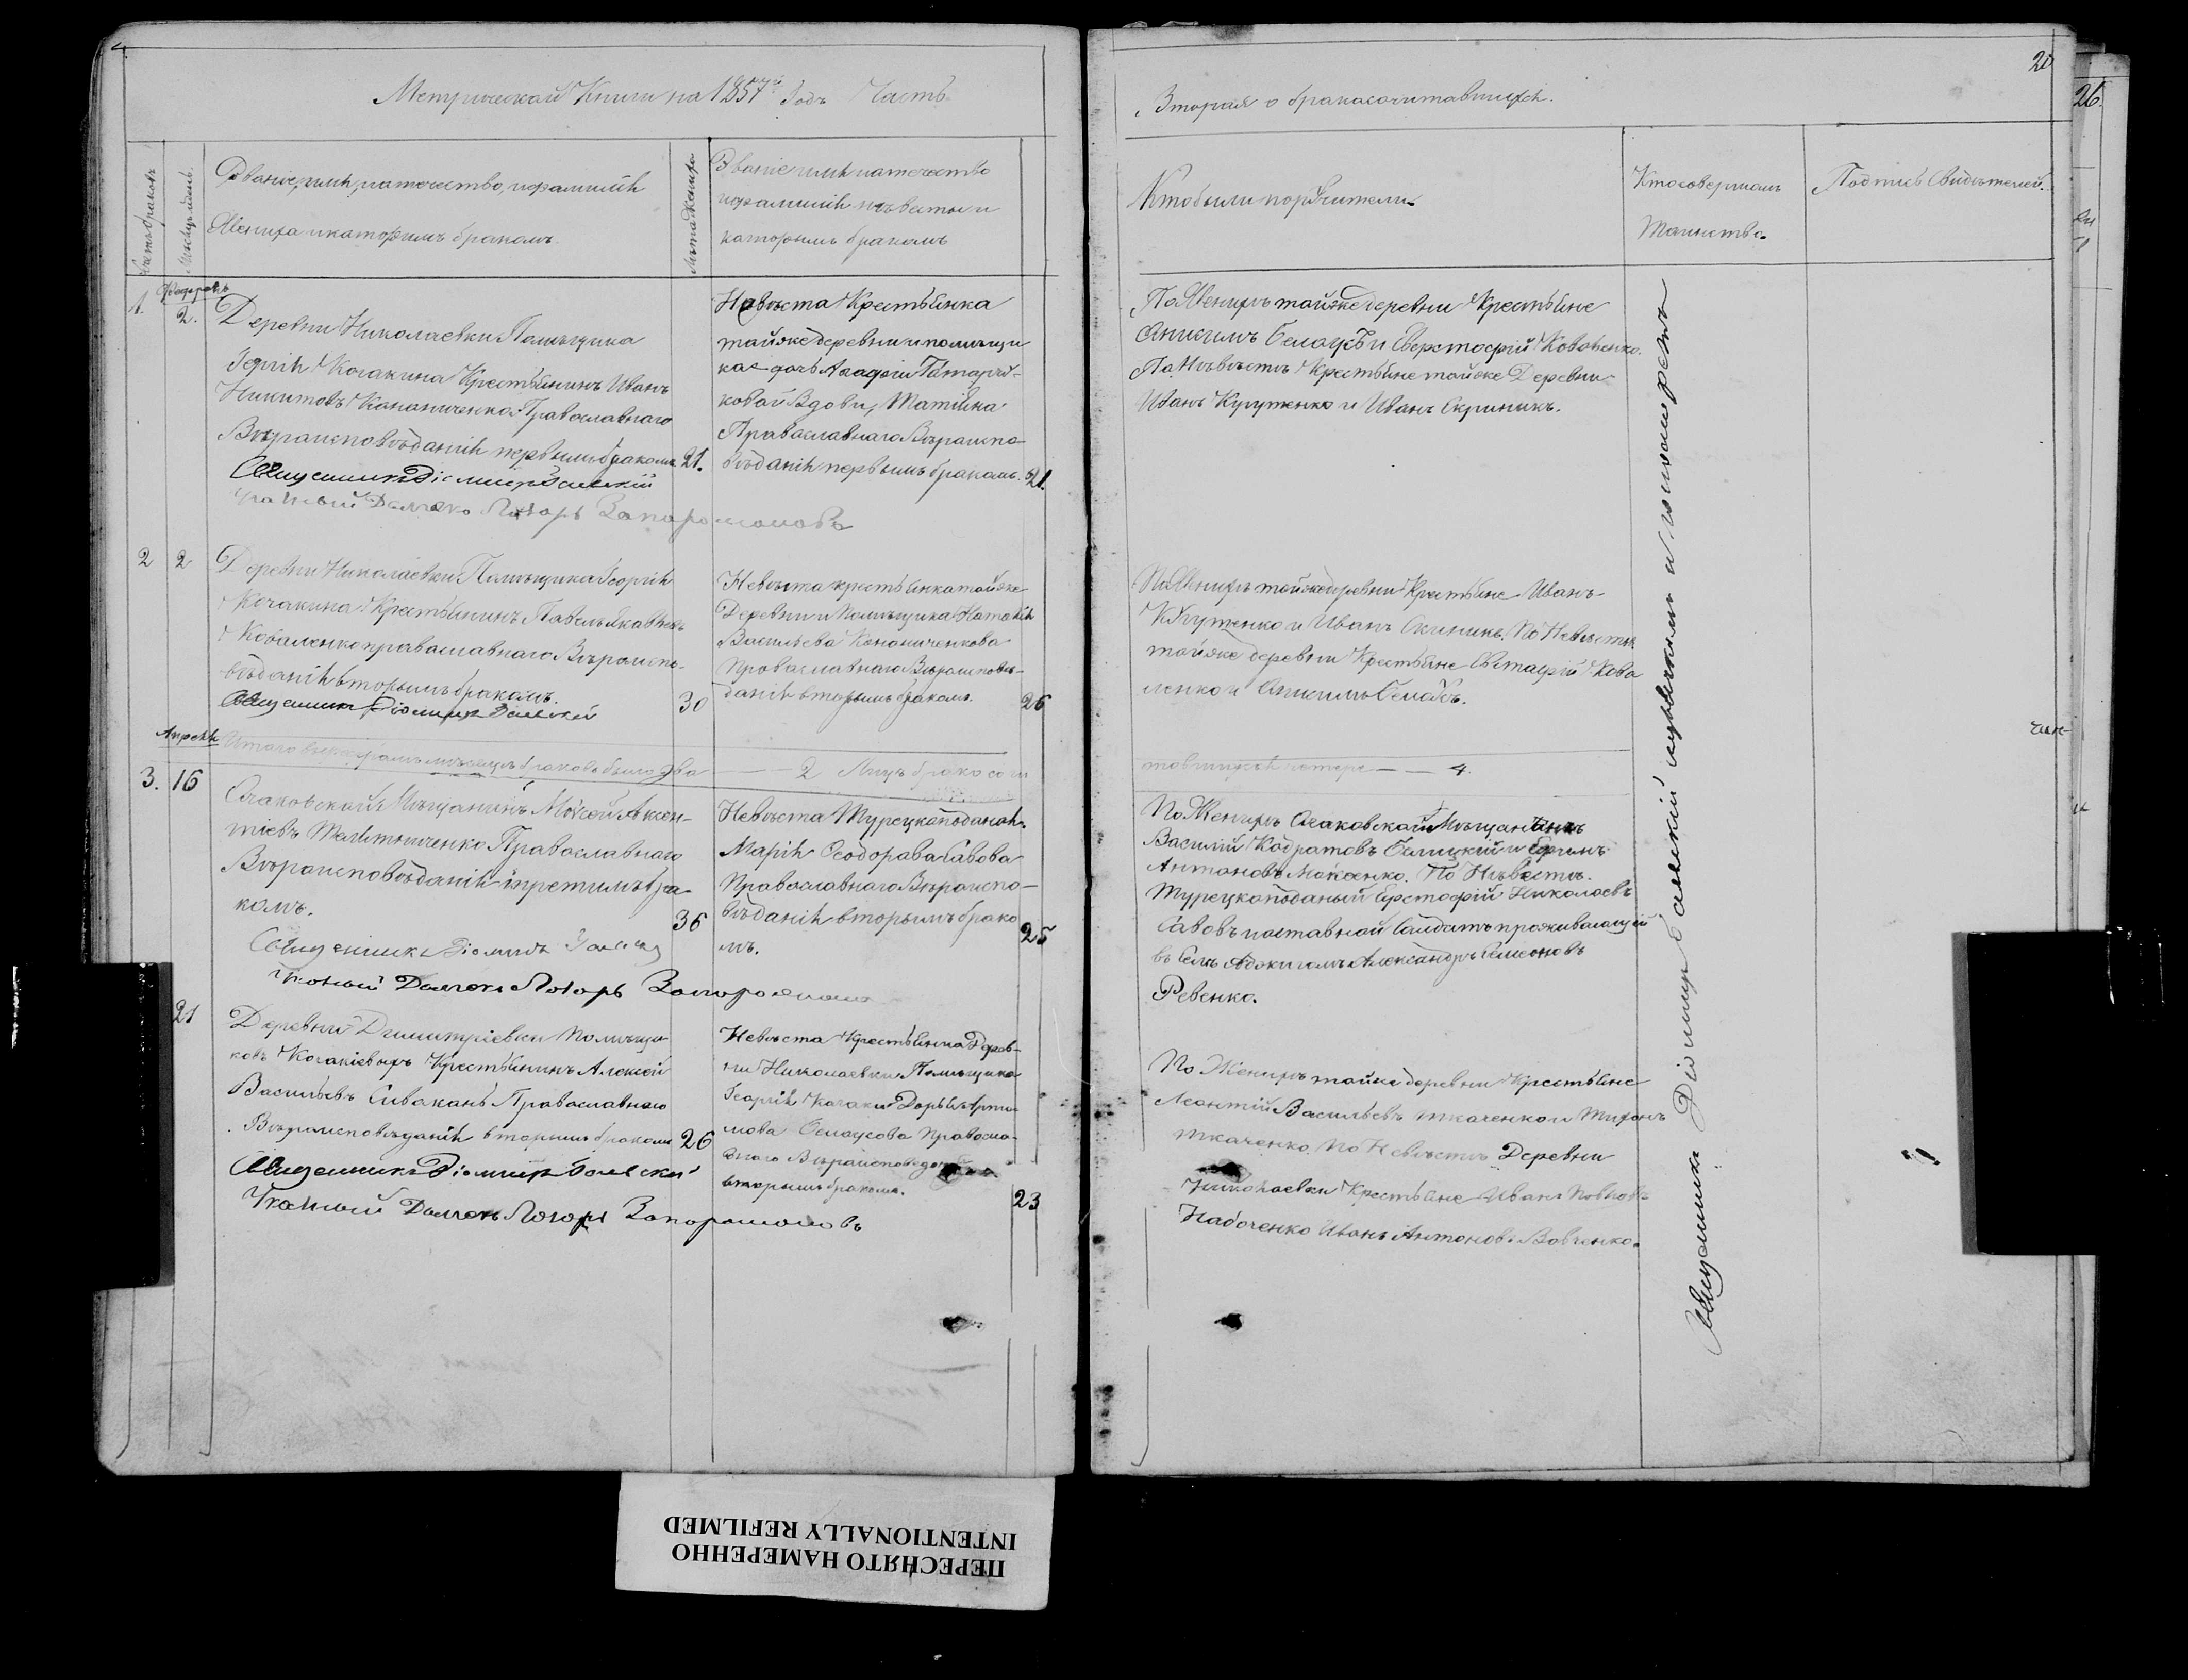 Метрической Книги на 1857й Годъ Часть
Вторая о бракасочитавшихся.
20
26.
Счетъ браковъ
Мѣсяцъ и день
Званіе, имя, иотечество, ифамилія
Жениха и каторимъ бракомъ.
Лѣта Жениха
Званіе имя иатечество
ифамилія нѣвесты и
каторымъ бракомъ
Кто были поручители
Кто совершалъ
Таинства.
Подпись Свидѣтелей.
1.
Февраль
2.
Деревни Николаевки Помѣщика
Георгія Кочакина Крестьянинъ Иванъ
Никитовъ Кананиченко Православнаго
Вѣраисповѣданія первымъ бракомъ
21.
Священникъ
Лазарь Запарожановъ
Невѣста Крестьянка
тойже деревни и помѣщи
ка дочь Агафіи
ковой Вдови, Матіяна
Православнаго Вѣраиспо-
вѣданія первымъ бракомъ.
21.
По Женихѣ тойже деревни Крестьяне
Анисимъ Белоусъ и Еверстафій Коваленко.
По Нѣвѣстѣ Крестьяне тойже Деревни
Иванъ Кугутенко и Иванъ Скриникъ.
2
2
Деревни Николаевки Помѣщика Георгія
Кочакина Крестьянинъ Павелъ Яковлевъ
Коваленко православнаго Вѣроиспо-
вѣданія вторымъ бракомъ.
30
Священникъ
Невѣста крестьянка тойже
Деревни и Помѣщика Наталія
Васильева Конониченкова
Православнаго Вѣроисповѣ-
данія вторымъ бракомъ.
26
По Женихѣ тойже деревни Крестьяне Иванъ
Кугутенко и Иванъ Скриникъ. По Невѣстѣ
тойже деревни Крестьяне Евстафій Кова
ленко и Анисимъ Белоусъ.
Апрель
Итого въ февралѣ мѣсяцѣ браковъ было два 2 Лицъ брако сочи
тавшихся четыре 4.
3.
16
Очаковской Мѣщанинъ Мойсей Аксен-
тіевъ Мельниченко Православнаго
Вѣраисповѣданія третимъ бра-
комъ.
36
Священникъ
Лазарь Запорожановъ
Невѣста Турецкоподаная
Марія Феодорова Савова
Православнаго Вѣраиспо-
вѣданія вторымъ брако
мъ.
25
По Женихѣ Очаковской Мѣщанинъ
Василій Кодратовъ Белицкій и Ефимъ
Антановъ Моксенко. По Нѣвестѣ
Турецкоподаный Ерстафій Николаевъ
Савовъ и отставной Салдатъ проживающій
въ Селѣ Аджигалъ Александръ Симеоновъ
Ревенко.
21
Деревни Димитріевки Помѣщи-
ковъ Кочакіевыхъ Крестьянинъ Алексей
Васильевъ Сивакань Православнаго
Вѣроисповѣданія вторымъ бракомъ
26
Священникъ
Лазарь Запорожановъ
Невѣста Крестьянка Дерев-
ни Николаевки Помѣщика
Георгія Кочаки Дарья Арти-
мова Белоусова Правосла-
внаго Вѣраисповеданія
вторымъ бракомъ.
23
По Женихѣ тойже деревни Крестьяне
Леонтій Васильевъ ткаченко и Тихонъ
ткаченко. По Невѣстѣ Деревни
Николаевки Крестьяне Иванъ Повловъ
Набоченко Иванъ Антоновъ Вовченко.
Священникъ
ПЕРЕСНЯТО НАМЕРЕННО
INTENTIONALLY REFILMED